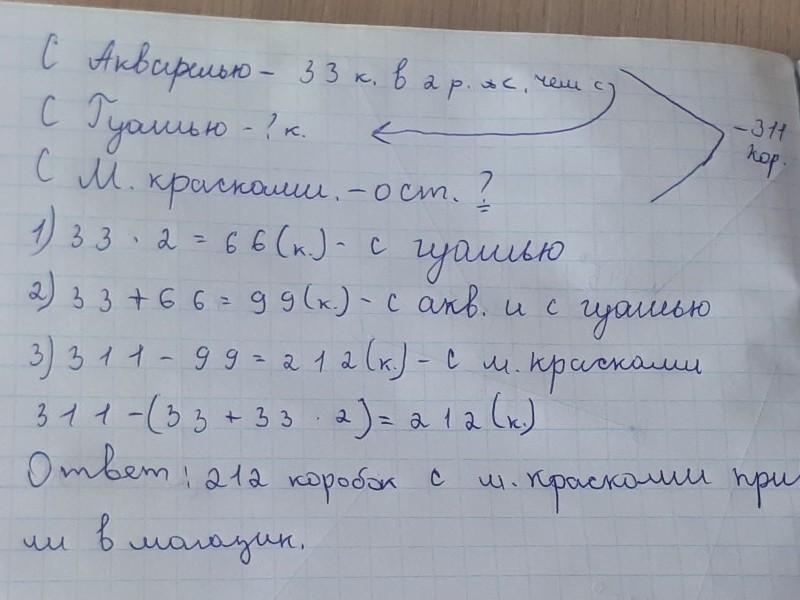 С Акварелью - 33 к. в 2 р. &lt;, чем с
С Гуашью - ? к.
- 311 кор.
С М. красками. - ост. ?
1) 33 · 2 = 66 (к.) - с гуашью
2) 33 + 66 = 99 (к.) - с акв. и с гуашью
3) 311 - 99 = 212 (к.) - с м. красками
311 - (33 + 33 · 2) = 212 (к.)
Ответ: 212 коробок с м. красками при
ли в магазин.